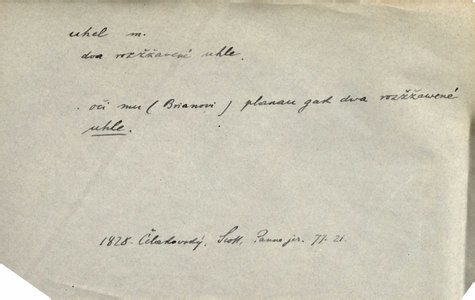 uhel m.
dva rozžžavené uhle.
oči mu (Brianovi) planau gak dva rozžžawené
uhle.
1828. Čelakovský, Scott, Panna jez. 77. 21.